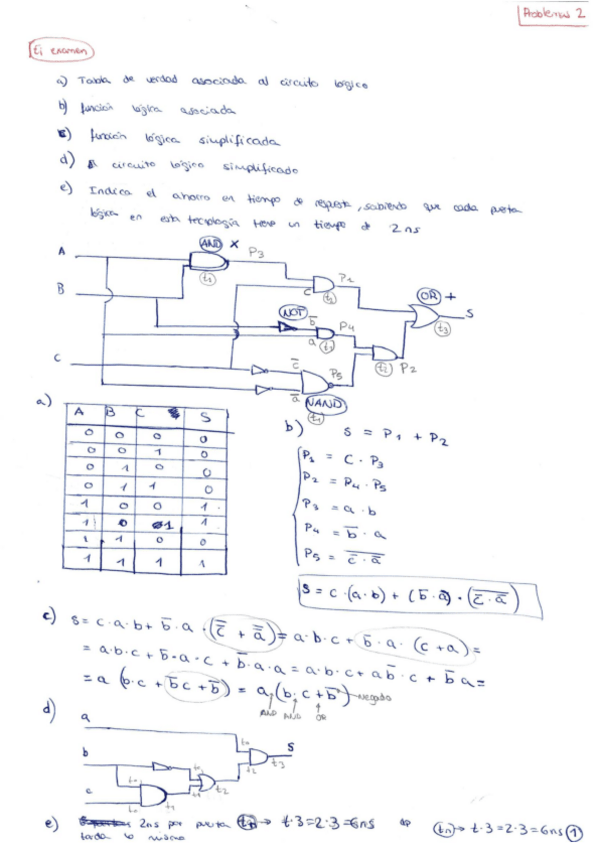 Problemas 2
Ej examen
a) Tabla de verdad asociada al circuito lógico
b) función lógica asociada
c) función lógica simplificada
d) circuito lógico simplificado
e) Indica el ahorro en tiempo de respuesta, sabiendo que cada puerta
lógica en esta tecnología tiene un tiempo de 2ns
AND x
A P3
t1
B c P1 OR +
t1 S
NOT b̅ P4 t3
a t1
C c̅ P5 t2 P2
a̅ NAND
t1
a)
A B C S
0 0 0 0
0 0 1 0
0 1 0 0
0 1 1 0
1 0 0 1
1 0 1 1
1 1 0 0
1 1 1 1
b) S = P1 + P2
P1 = C · P3
P2 = P4 · P5
P3 = a · b
P4 = b̅ · a
P5 = \overline{c̅ · a̅}
S = c · (a · b) + (b̅ · a) · (\overline{c̅ · a̅})
c) S = c · a · b + b̅ · a · (c̿ + a̿) = a · b · c + b̅ · a · (c + a) =
= a · b · c + b̅ · a · c + b̅ · a · a = a · b · c + a b̅ · c + b̅ a =
= a (b · c + b̅ c + b̅) = a (b · c + b̅) negado
AND AND OR
d) a
to S
b t2 t3
to t1 t2
c to t1
e) 2ns por puerta tn → t·3=2·3=6ns tn → t·3=2·3=6ns 1
tarda lo mismo